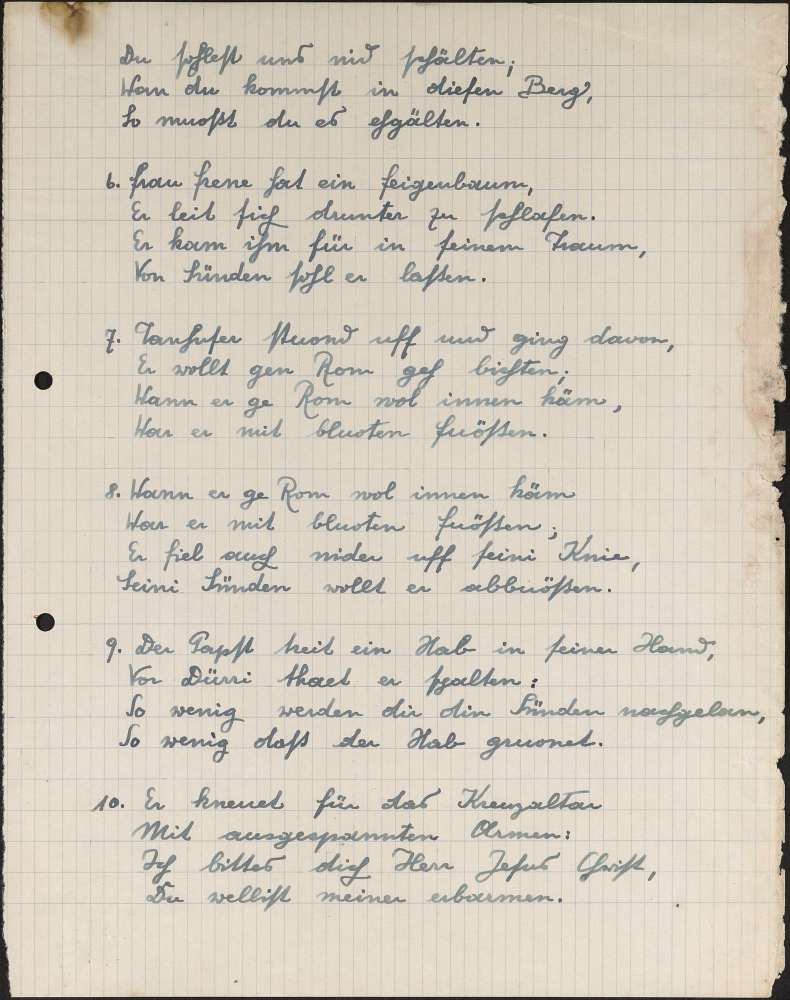 Du sohlest uns nid schälten;
Wan du kommst in diesen Berg,
So muoßt du es ehgälten.
6. Frau Frene hat ein Feigenbaum,
Er leit sich drunter zu schlafen.
Er kam ihm für in seinem Traum,
Von Sünden sohl er laßen.
7. Tanhuser stuond uff und ging davon,
Er wollt gen Rom geh bichten;
Wann er ge Rom wol innen käm,
War er mit bluoten Fuößen.
8. Wann er ge Rom wol innen käm
War er mit bluoten Fuößen;
Er fiel auch nider uff seini Knie,
Seini Sünden wollt er abbuößen.
9. Der Papst treit ein Stab in seiner Hand,
Vor Dürri thaet er spalten:
So wenig werden dir din Sünden nachgelan,
So wenig daß der Stab gruonet.
10. Er kneuet für das Kreuzaltar
Mit ausgespannten Armen:
Ich bittes dich Herr Jesus Christ,
Du wellist meiner erbarmen.